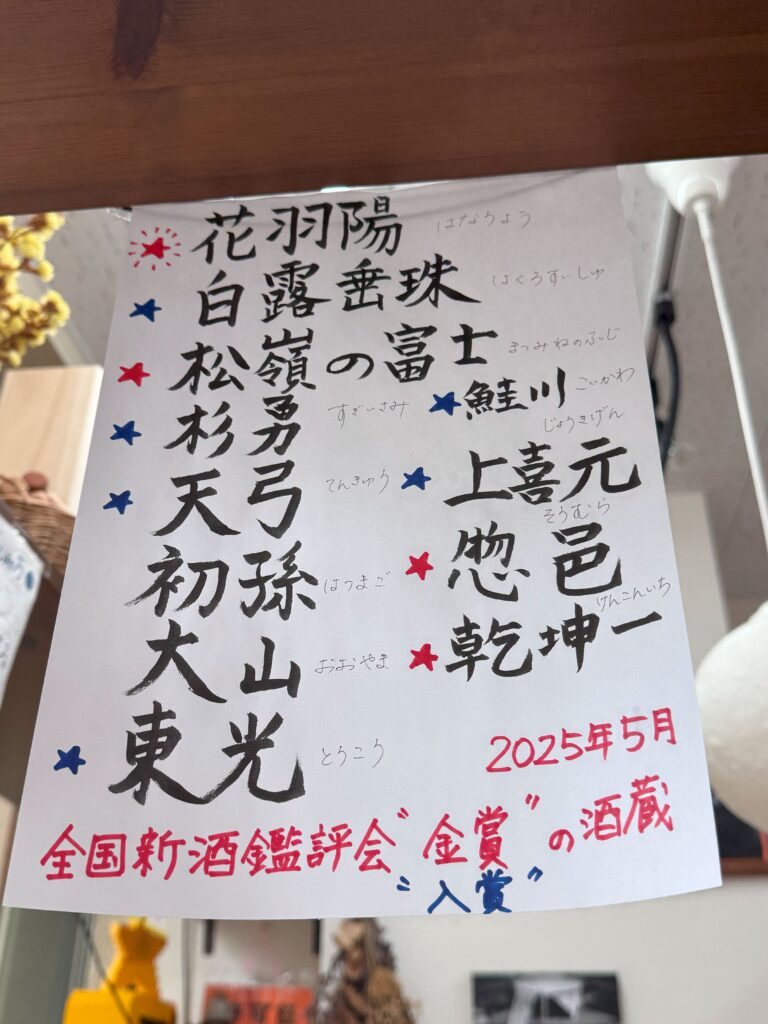 花羽陽 はなうよう
白露垂珠 はくろすいしゅ
松嶺の富士 まつみねのふじ
杉勇 すぎいさみ
鮭川 こいかわ
天弓 てんきゅう
上喜元 じょうきげん
初孫 はつまご
惣邑 そうむら
大山 おおやま
乾坤一 けんこんいち
東光 とうこう
2025年5月
全国新酒鑑評会"金賞"の酒蔵
"入賞"